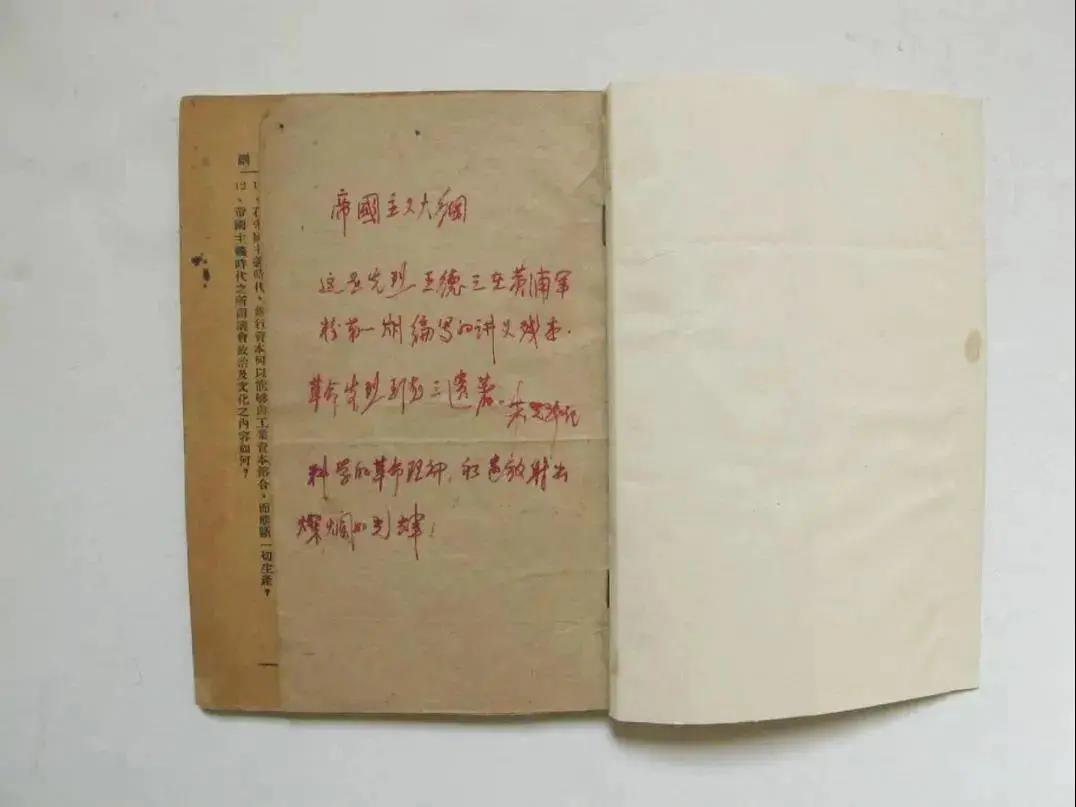 帝國主义大綱
这是先烈王德三在黄浦军
校第一期编写的讲义残本.
革命先烈王德三遗著。
科学的革命理论, 永远放射出
灿烂的光辉!
11、在帝國主義時代,銀行資本何以能够與工業資本溶合,而壟斷一切生產?
12、帝國主義時代之所謂議會政治及文化之內容如何?